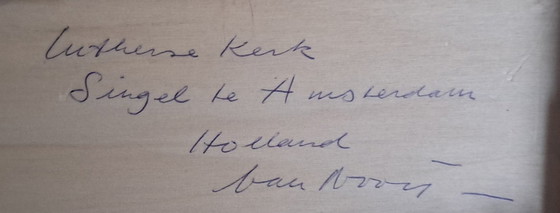 Lutherse Kerk
Singel te Amsterdam
Holland
van Nooij